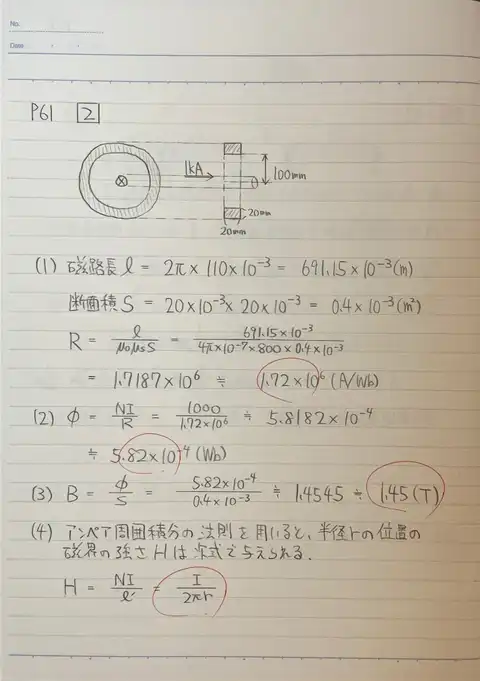 No.
Date
P61 2
1kA
100mm
20mm
20mm
(1) 磁路長 l = 2π × 110×10⁻³ = 691.15×10⁻³(m)
断面積 S = 20×10⁻³×20×10⁻³ = 0.4×10⁻³(m²)
R = l/μ₀μsS = 691.15×10⁻³/4π×10⁻⁷×800×0.4×10⁻³
= 1.7187×10⁶ ≒ 1.72×10⁶ (A/Wb)
(2) φ = NI/R = 1000/1.72×10⁶ ≒ 5.8182×10⁻⁴
≒ 5.82×10⁻⁴ (Wb)
(3) B = φ/S = 5.82×10⁻⁴/0.4×10⁻³ ≒ 1.4545 ≒ 1.45(T)
(4) アンペア周回積分の法則を用いると、半径rの位置の
磁界の強さHは次式で与えられる.
H = NI/l = I/2πr